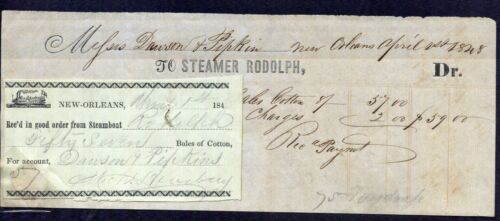 Messrs Dawson & Pipkin New Orleans April 1st 1848
TO STEAMER RODOLPH, Dr.
Bales Cotton 57.00
Charges 2.00 $59.00
Rec'd Paymt
NEW-ORLEANS, 184
Rec'd in good order from Steamboat
Rodolph
Fifty Seven Bales of Cotton,
For account, Dawson & Pipkins
57